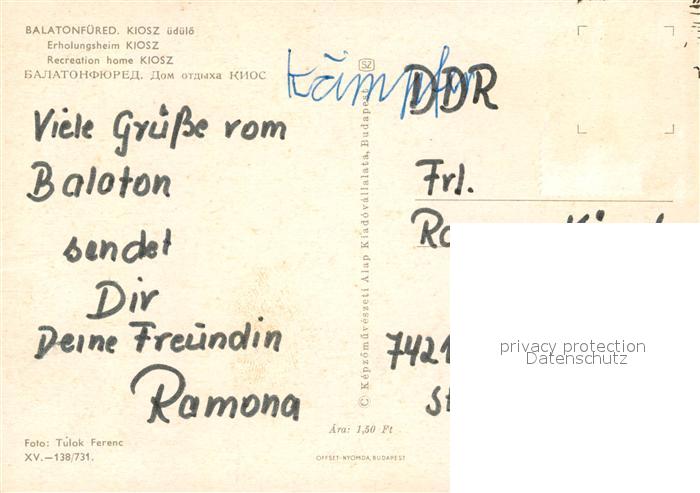 BALATONFÜRED. KIOSZ üdülő
Erholungsheim KIOSZ
Recreation home KIOSZ
БАЛАТОНФЮРЕД. Дом отдыха КИОС
Viele Grüße vom
Balaton
sendet
Dir
Deine Freundin
Ramona
Foto: Tulok Ferenc
XV.—138/731.
SZ
© Képzőművészeti Alap Kiadóvállalata, Budapest
Ára: 1,50 Ft
OFFSET-NYOMDA, BUDAPEST
Kämpfe
DDR
Frl.
7421
privacy protection
Datenschutz